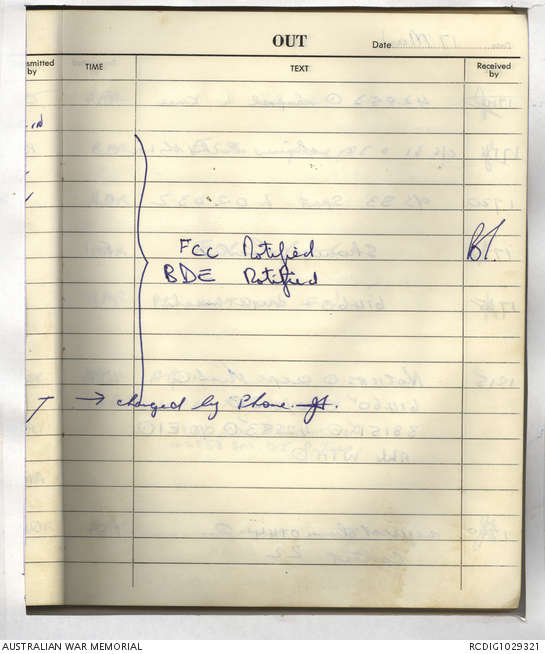 OUT
Date
smitted by
TIME
TEXT
Received by
FCC Notified
BDE Notified
BT.
→ changed by Phone.
AUSTRALIAN WAR MEMORIAL
RCDIG1029321